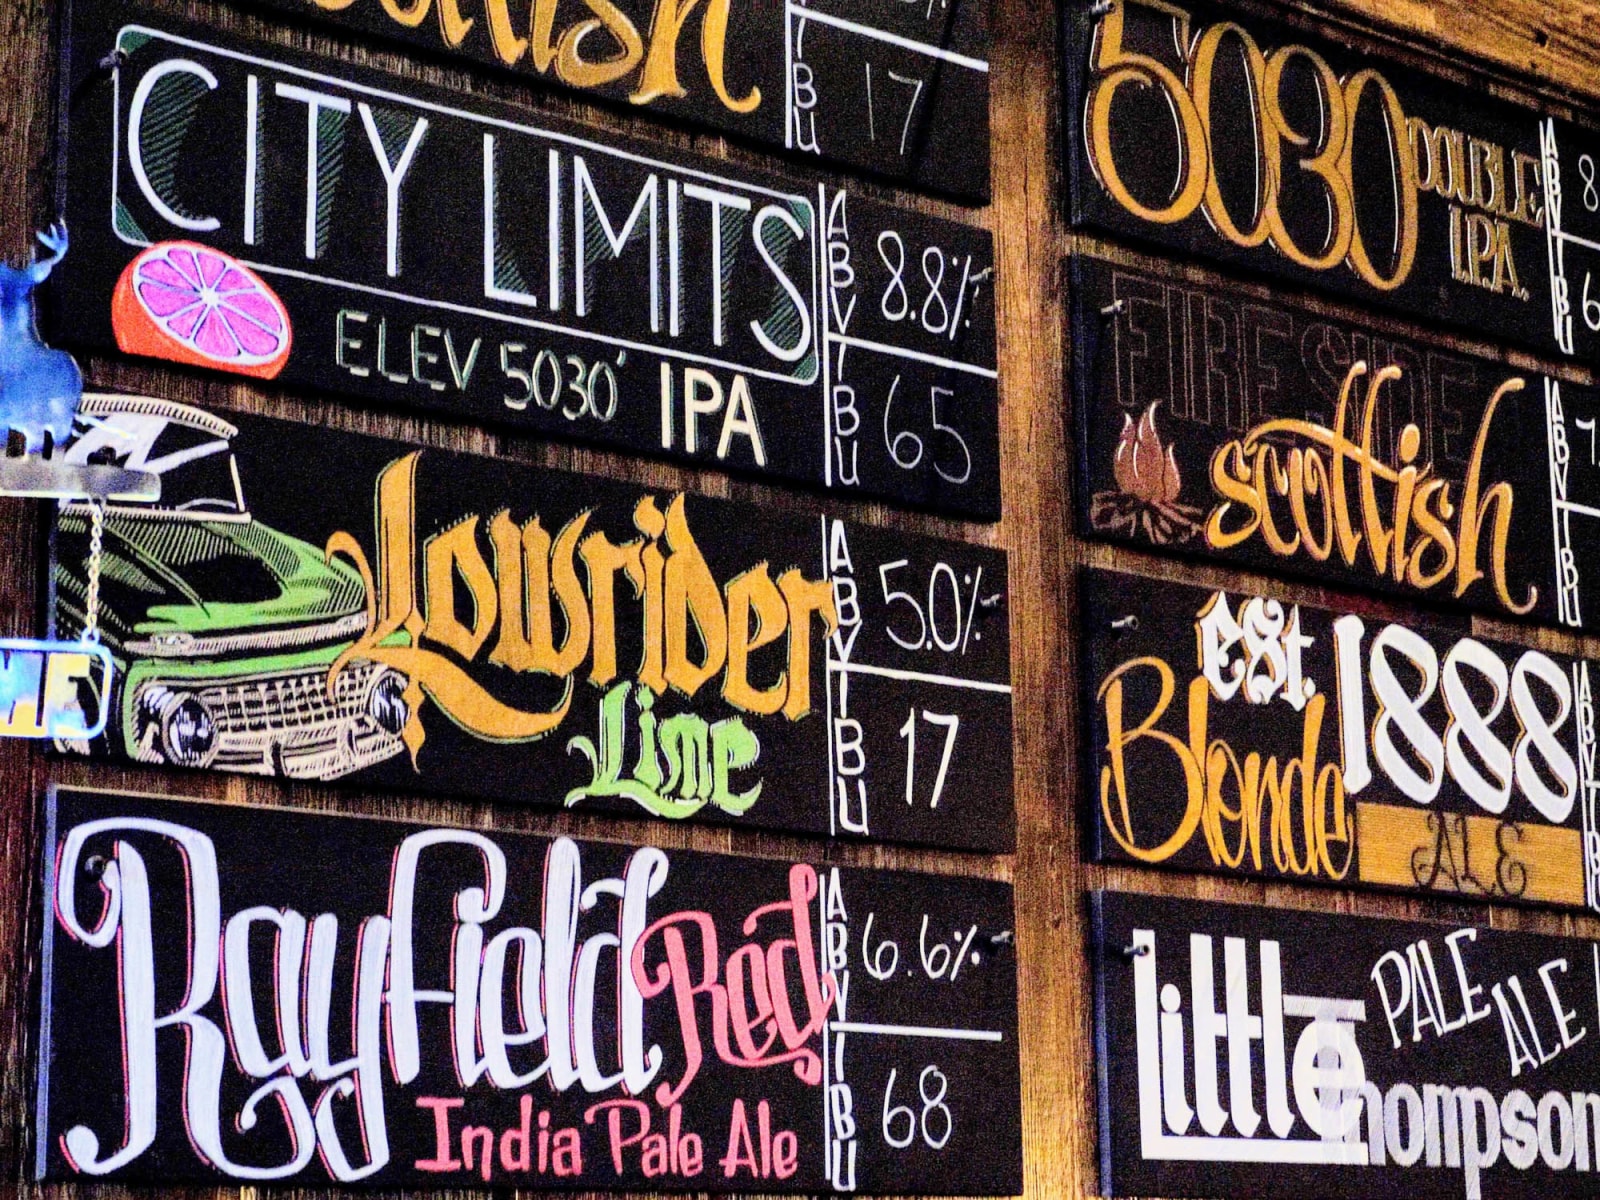 Scottish
IBU 17
CITY LIMITS
ELEV 5030' IPA
ABV 8.8%
IBU 65
Lowrider
Lime
ABV 5.0%
IBU 17
Rayfield Red
India Pale Ale
ABV 6.6%
IBU 68
5030 DOUBLE
I.P.A.
ABV 8
IBU 6
FIRESIDE
Scottish
ABV 7.
IBU
est. 1888
Blonde
ALE
ABV
Little PALE ALE
Thompson